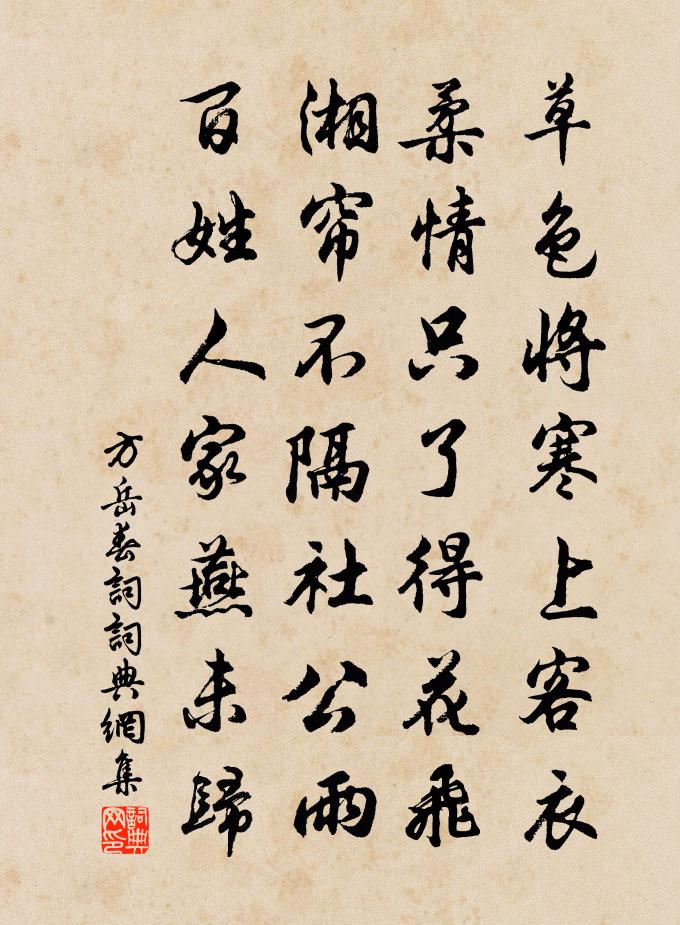 草色將寒上客衣
柔情只了得花飛
湘帘不隔社公雨
百姓人家燕未歸
方岳春詞詞典網集
詞典
网印